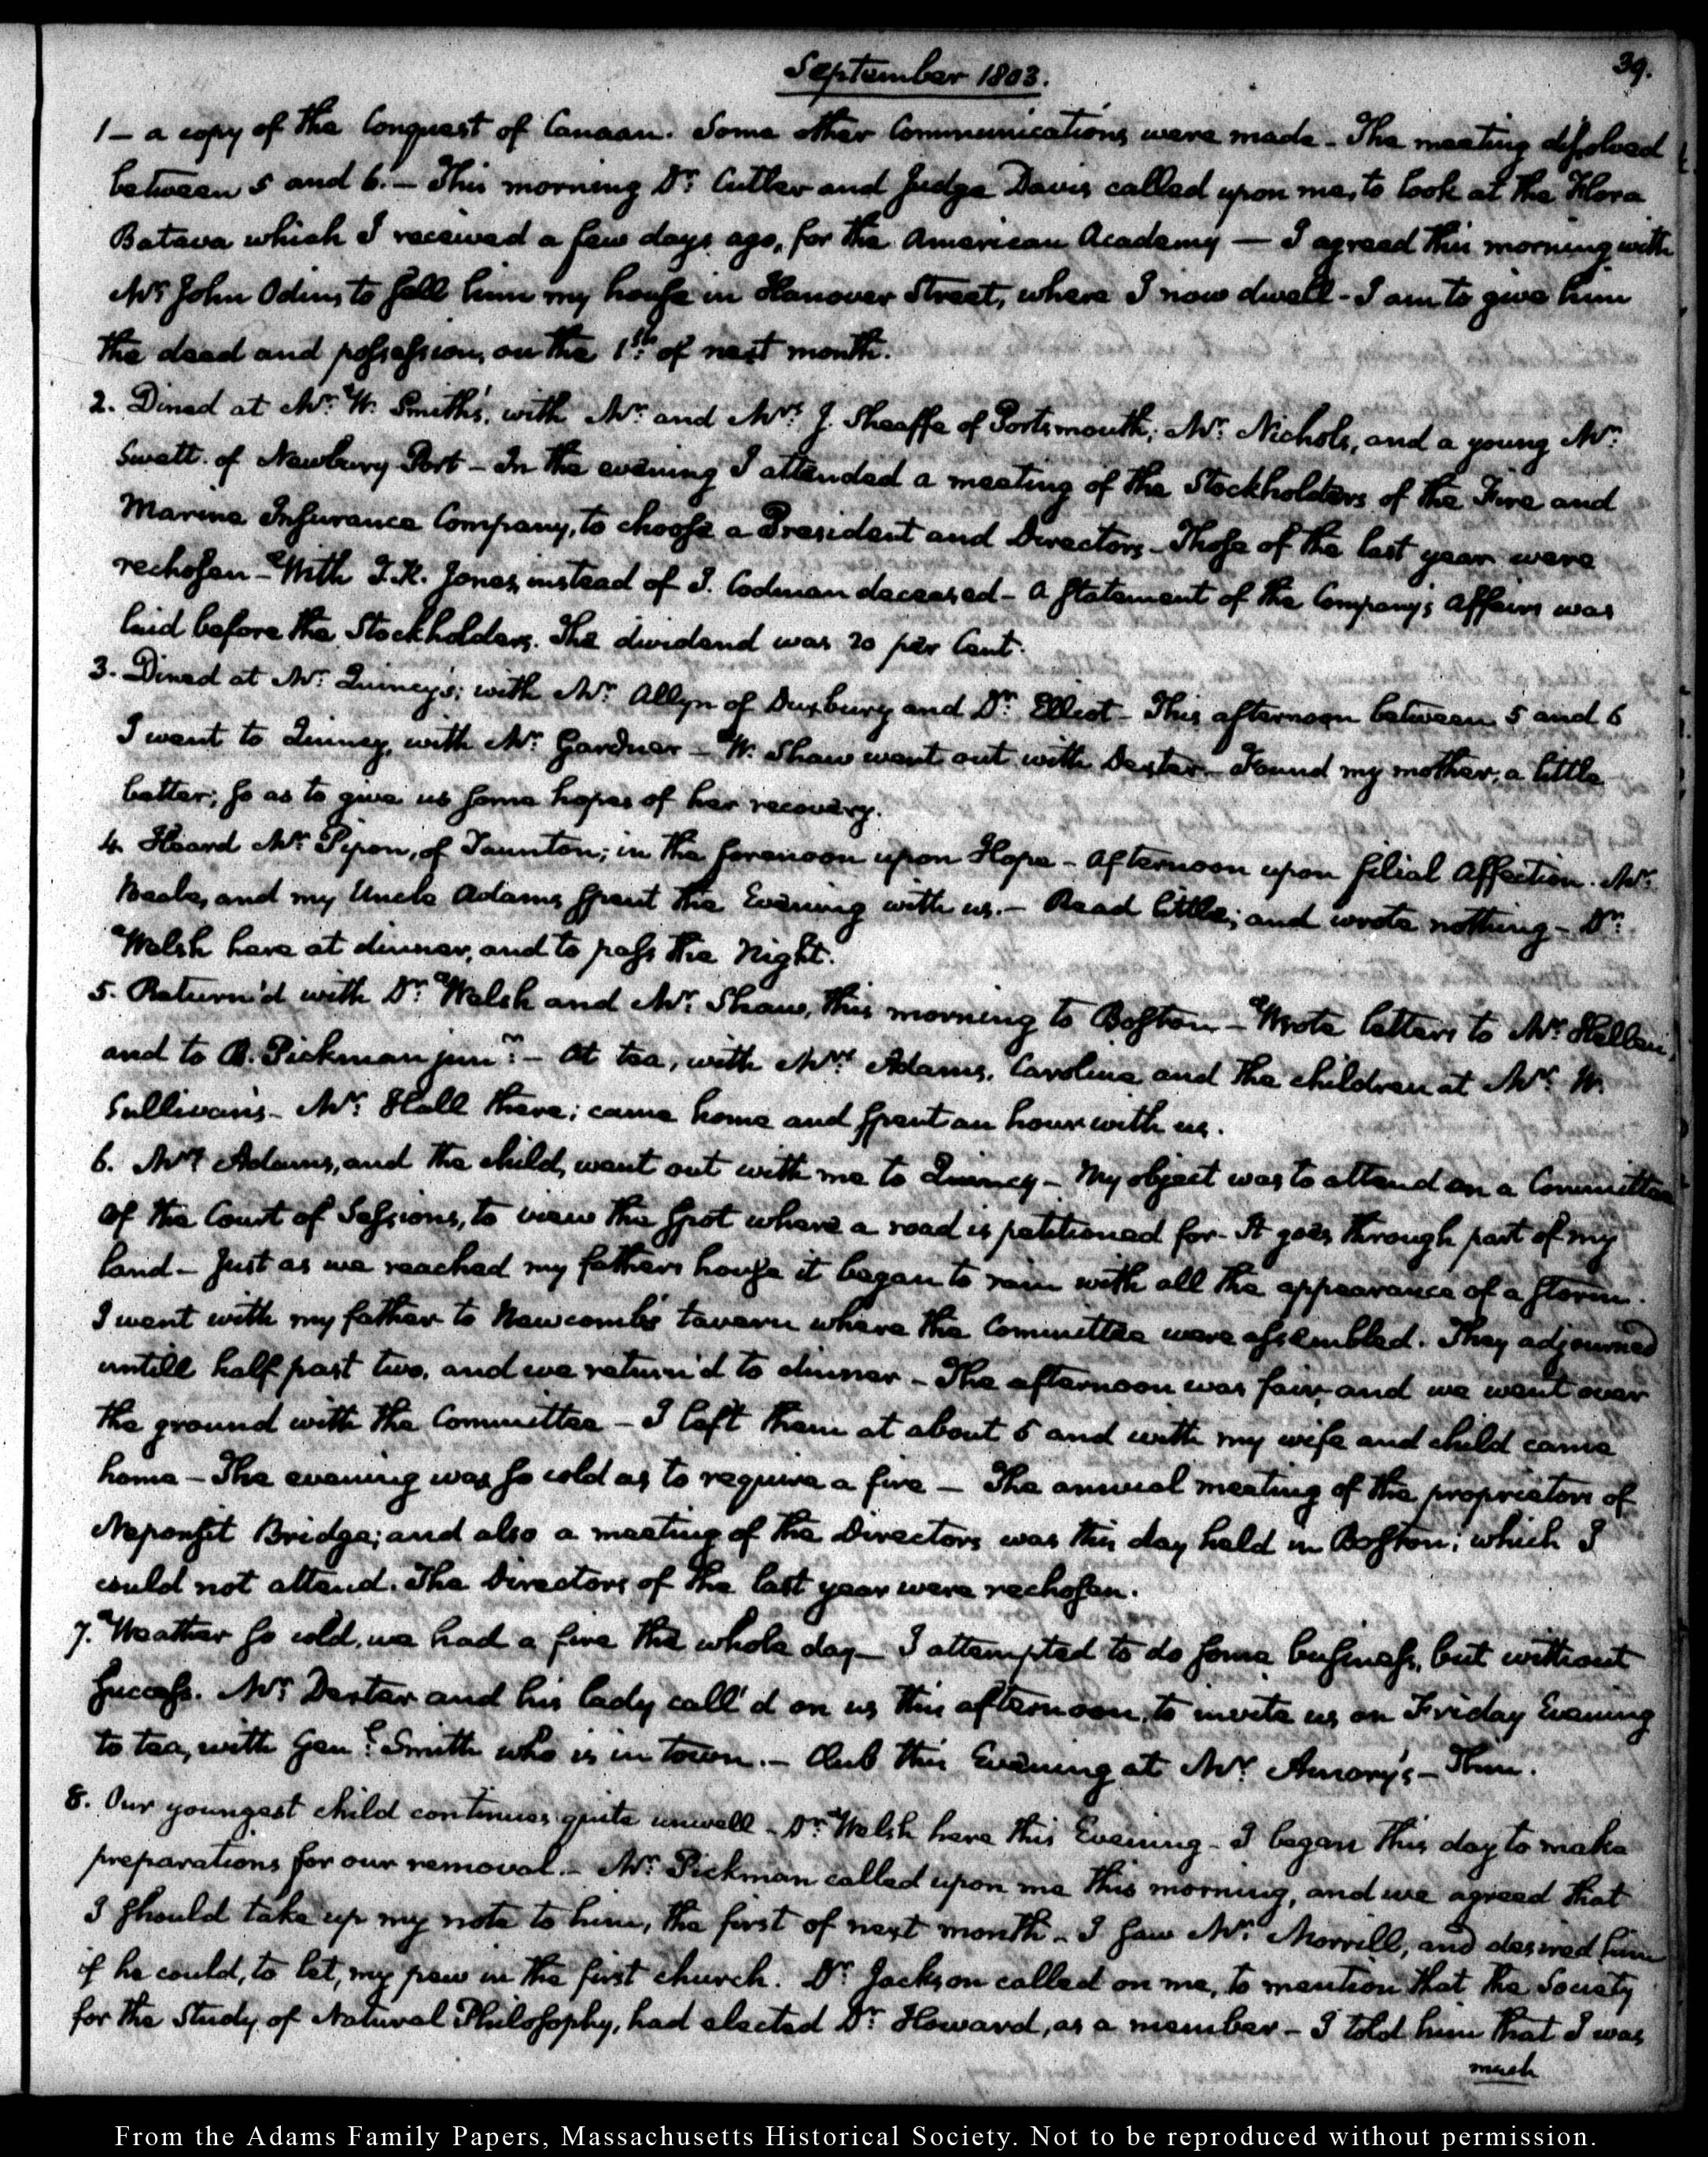 39.
September 1803.
1 - a copy of the Conquest of Canaan. Some other Communications were made - The meeting dissolved
between 5 and 6. - This morning Dr. Cutler and Judge Davis called upon me, to look at the Flora
Batava which I received a few days ago, for the American Academy - I agreed this morning with
Mr. John Odin, to sell him my house in Hanover Street, where I now dwell - I am to give him
the deed and possession, on the 1st. of next month.
2. Dined at Mr. W. Smith's, with Mr. and Mrs. J. Sheaffe of Portsmouth, Mr. Nichols, and a young Mr.
Swett. of Newbury Port - In the evening I attended a meeting of the Stockholders of the Fire and
Marine Insurance Company, to choose a President and Directors - Those of the last year were
rechosen - With T. K. Jones, instead of I. Codman deceased - A statement of the Company's affairs was
laid before the Stockholders. The dividend was 20 per Cent.
3. Dined at Mr. Quincy's; with Mr. Allyn of Duxbury and Dr. Elliot - This afternoon between 5 and 6
I went to Quincy, with Mr. Gardner - W. Shaw went out with Dexter - Found my mother, a little
better; so as to give us some hopes of her recovery.
4. Heard Mr. Pipon, of Taunton; in the forenoon upon Hope - Afternoon upon filial Affection. Mr.
Beale, and my Uncle Adams spent the Evening with us. - Read little; and wrote nothing - Dr.
Welsh here at dinner, and to pass the Night.
5. Return'd with Dr. Welsh and Mr. Shaw, this morning to Boston - Wrote letters to Mr. Hellen,
and to B. Pickman junr. - At tea, with Mrs. Adams, Caroline and the children at Mr. W.
Sullivan's - Mr. Hall there; came home and spent an hour with us.
6. Mrs. Adams, and the child, went out with me to Quincy - My object was to attend on a Committee
of the Court of Sessions, to view the spot where a road is petitioned for - It goes through part of my
land - Just as we reached my fathers house it began to rain with all the appearance of a storm.
I went with my father to Newcomb's tavern where the Committee were assembled. They adjourned
untill half past two, and we return'd to dinner - The afternoon was fair, and we went over
the ground with the Committee - I left them at about 5 and with my wife and child came
home - The evening was so cold as to require a fire - The annual meeting of the proprietors of
Neponsit Bridge; and also a meeting of the Directors was this day held in Boston; which I
could not attend. The Directors of the last year were rechosen.
7. Weather so cold, we had a fire the whole day - I attempted to do some business, but without
success. Mr. Dexter and his lady call'd on us this afternoon, to invite us on Friday Evening
to tea, with Genl. Smith who is in town. - Club this Evening at Mr. Amory's - Thin.
8. Our youngest child continues quite unwell - Dr. Welsh here this Evening - I began this day to make
preparations for our removal. - Mr. Pickman called upon me this morning, and we agreed that
I should take up my note to him, the first of next month - I saw Mr. Morrill, and desired him
if he could, to let, my pew in the first church. Dr. Jackson called on me, to mention that the Society
for the Study of Natural Philosophy, had elected Dr. Howard, as a member - I told him that I was
much
From the Adams Family Papers, Massachusetts Historical Society. Not to be reproduced without permission.